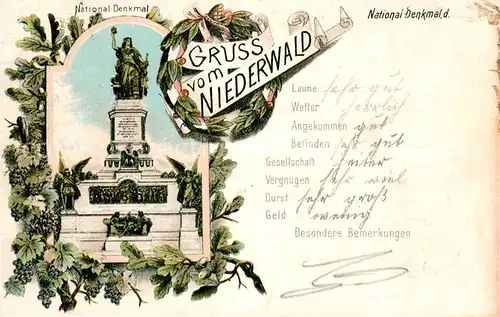 National Denkmal
National-Denkmal, d.
GRUSS
vom
NIEDERWALD
Laune sehr gut
Wetter herrlich
Angekommen gut
Befinden sehr gut
Gesellschaft heiter
Vergnügen sehr viel
Durst sehr groß
Geld wenig
Besondere Bemerkungen